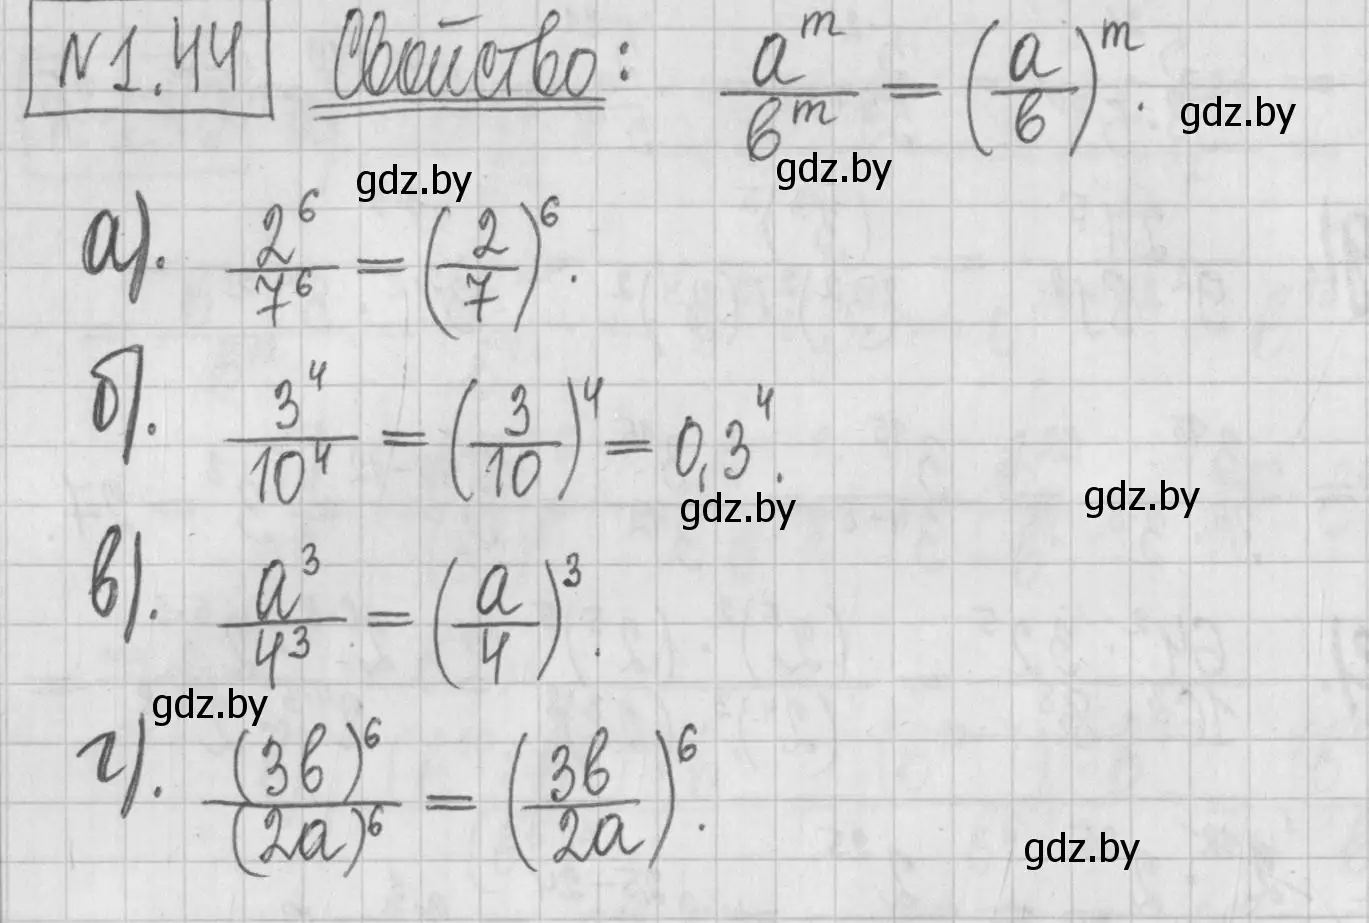 N 1.44 Свойство: a^m / b^m = (a/b)^m. gdz.by
gdz.by gdz.by
а). 2^6 / 7^6 = (2/7)^6.
б). 3^4 / 10^4 = (3/10)^4 = 0,3^4.
gdz.by gdz.by
в). a^3 / 4^3 = (a/4)^3.
gdz.by
г). (3b)^6 / (2a)^6 = (3b/2a)^6.
gdz.by